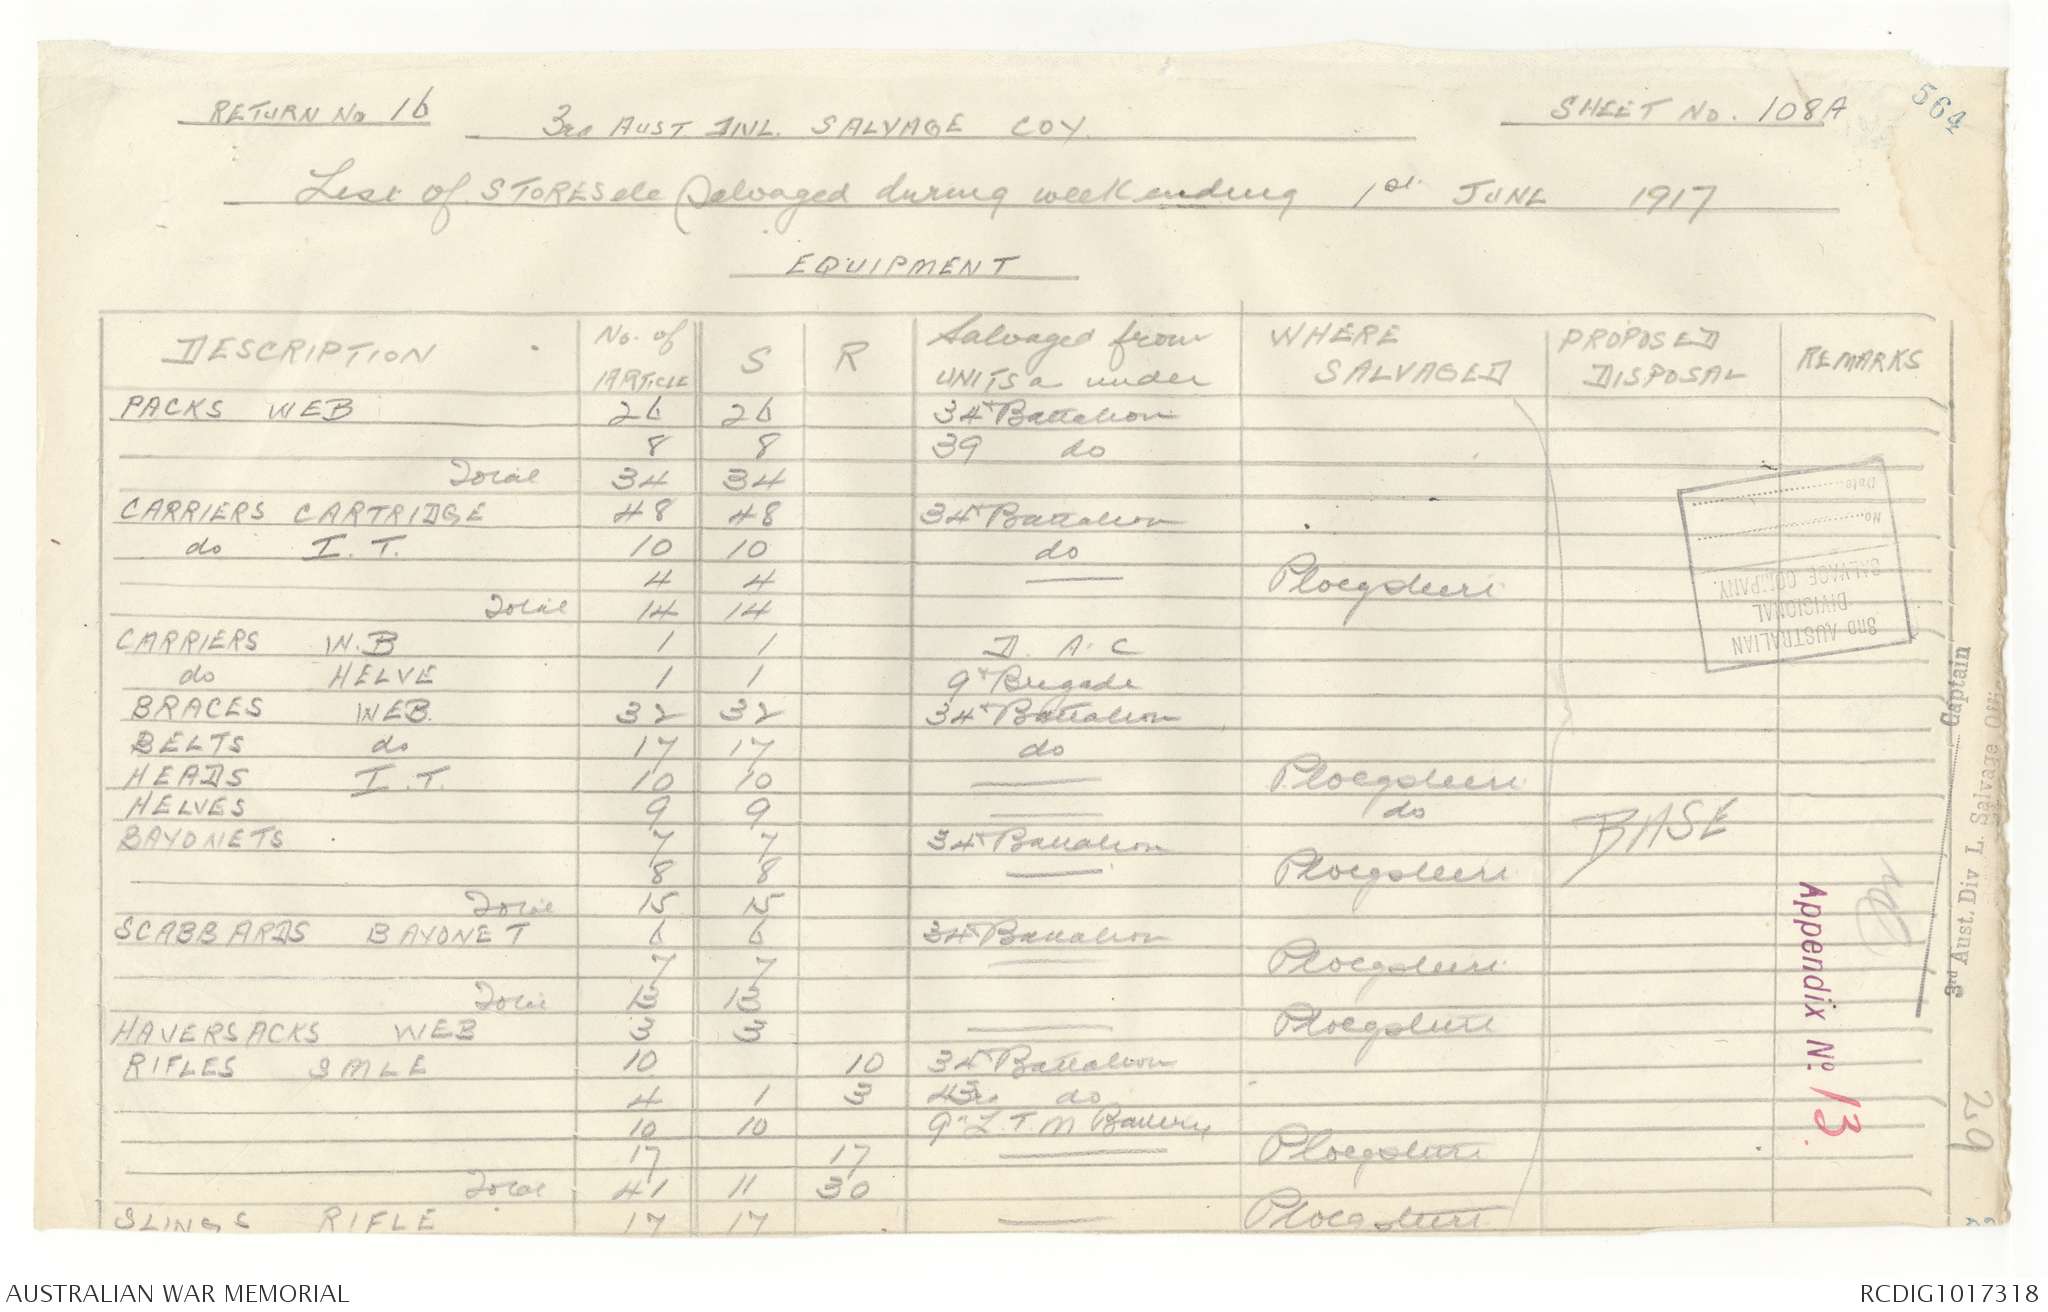 RETURN No 16
3RD AUST DIVL. SALVAGE COY.
SHEET No. 108A
564
List of STORES etc Salvaged during week ending 1st JUNE 1917
EQUIPMENT
DESCRIPTION No. of ARTICLE S R Salvaged from UNITS a under WHERE SALVAGED PROPOSED DISPOSAL REMARKS
PACKS WEB 26 26 34th Battalion
8 8 39 do
Total 34 34
CARRIERS CARTRIDGE 48 48 34th Battalion
do I.T. 10 10 do
4 4 — Ploegsteert
Total 14 14
CARRIERS W.B 1 1 D. A. C
do HELVE 1 1 9th Brigade
BRACES WEB. 32 32 34th Battalion
BELTS do 17 17 do
HEADS I.T. 10 10 — Ploegsteert
HELVES 9 9 — do
BASE
BAYONETS 7 7 34th Battalion
8 8 — Ploegsteert
Total 15 15
SCABBARDS BAYONET 6 6 34th Battalion
7 7 — Ploegsteert
Total 13 13
HAVERSACKS WEB 3 3 — Ploegsteert
RIFLES SMLE 10 10 34th Battalion
4 1 3 43rd do
10 10 9th L.T.M Battery
17 17 — Ploegsteert
Total 41 11 30
SLINGS RIFLE 17 17 — Ploegsteert
3RD AUSTRALIAN
DIVISIONAL
SALVAGE COMPANY.
No.
Date
Captain
3rd Aust. Div L. Salvage
Appendix No. 13.
29
AUSTRALIAN WAR MEMORIAL
RCDIG1017318